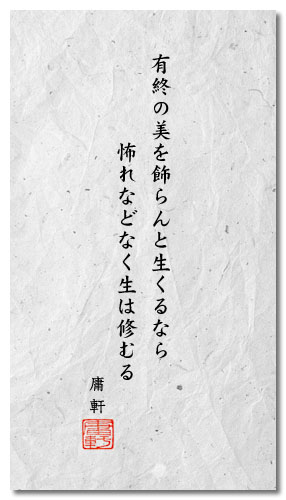 有終の美を飾らんと生くるなら
怖れなどなく生は修むる
庸軒